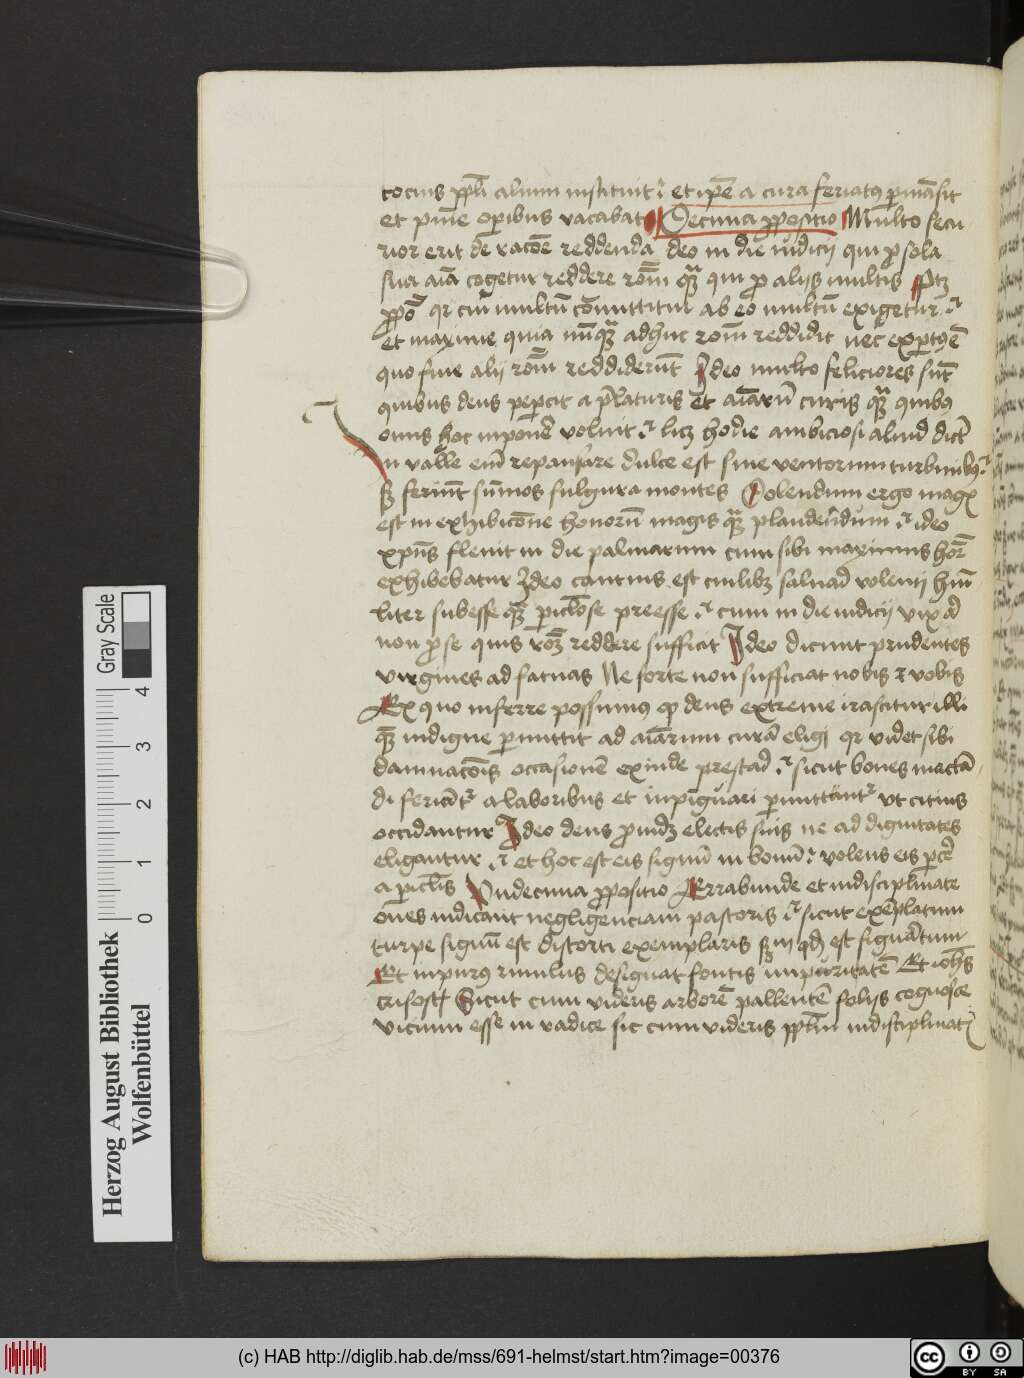 tocius ppli alium instituit : et ipse a cura feriatus permansit
et pacie operibus vacabat Decima propositio Multo secu
rior erit de racoe reddenda deo in die iudicij qui pro sola
sua aia cogetur reddere rom qua qui pro alijs multis Ptz
propo qr cui multu comittitur ab eo multu exigetur
et maxime quia nuqua adhuc rom reddidit nec expertus e
quo fine alij rom reddiderunt Ideo multo feliciores sunt
quibus deus pepercit a prelaturis et aiarum curis qua quibus
onus hoc inponere voluit et licz hodie ambiciosi aliud dicant
In valle eni repausare dulce est sine ventorum turbinibus
sz feriunt summos fulgura montes Dolendum ergo magis
est in exhibicone honorum magis qua plaudendum et ideo
xpus fleuit in die palmarum cum sibi maximus honor
exhibebatur Ideo cautius est cuilibz saluari volenti humi
liter subesse qua periclose preesse et cum in die iudicij vix ad
non pro se quis rom reddere sufficiat Ideo dicunt prudentes
virgines ad fatuas Ne forte non sufficiat nobis et vobis
Ex quo inferre possumus qp deus extreme irascitur illi
que indigne permittit ad aiarum cura eligi qr videt sibi
damnacois occasione exinde prestari et sicut boues mactan
di feriant a laboribus et inpinguari permittant vt citius
occidantur Ideo deus prouidz electis suis ne ad dignitates
eligantur et hoc est eis signu in bonu : volens eis parcere
a periclis Vndecima propositio Errabunde et indisciplinate
oues indicant negligenciam pastoris et sicut exemplatum
turpe signu est distorti exemplaris sz in qd est figuratum
Et inpurus riuulus designat fontis impuritate Et iohes
crisost Sicut cum videris arbore pallente folijs cognosce
vicium esse in radice sic cum videris pplm indisciplinat
Herzog August Bibliothek
Wolfenbüttel
0 1 2 3 4
Gray Scale
(c) HAB http://diglib.hab.de/mss/691-helmst/start.htm?image=00376
cc BY SA